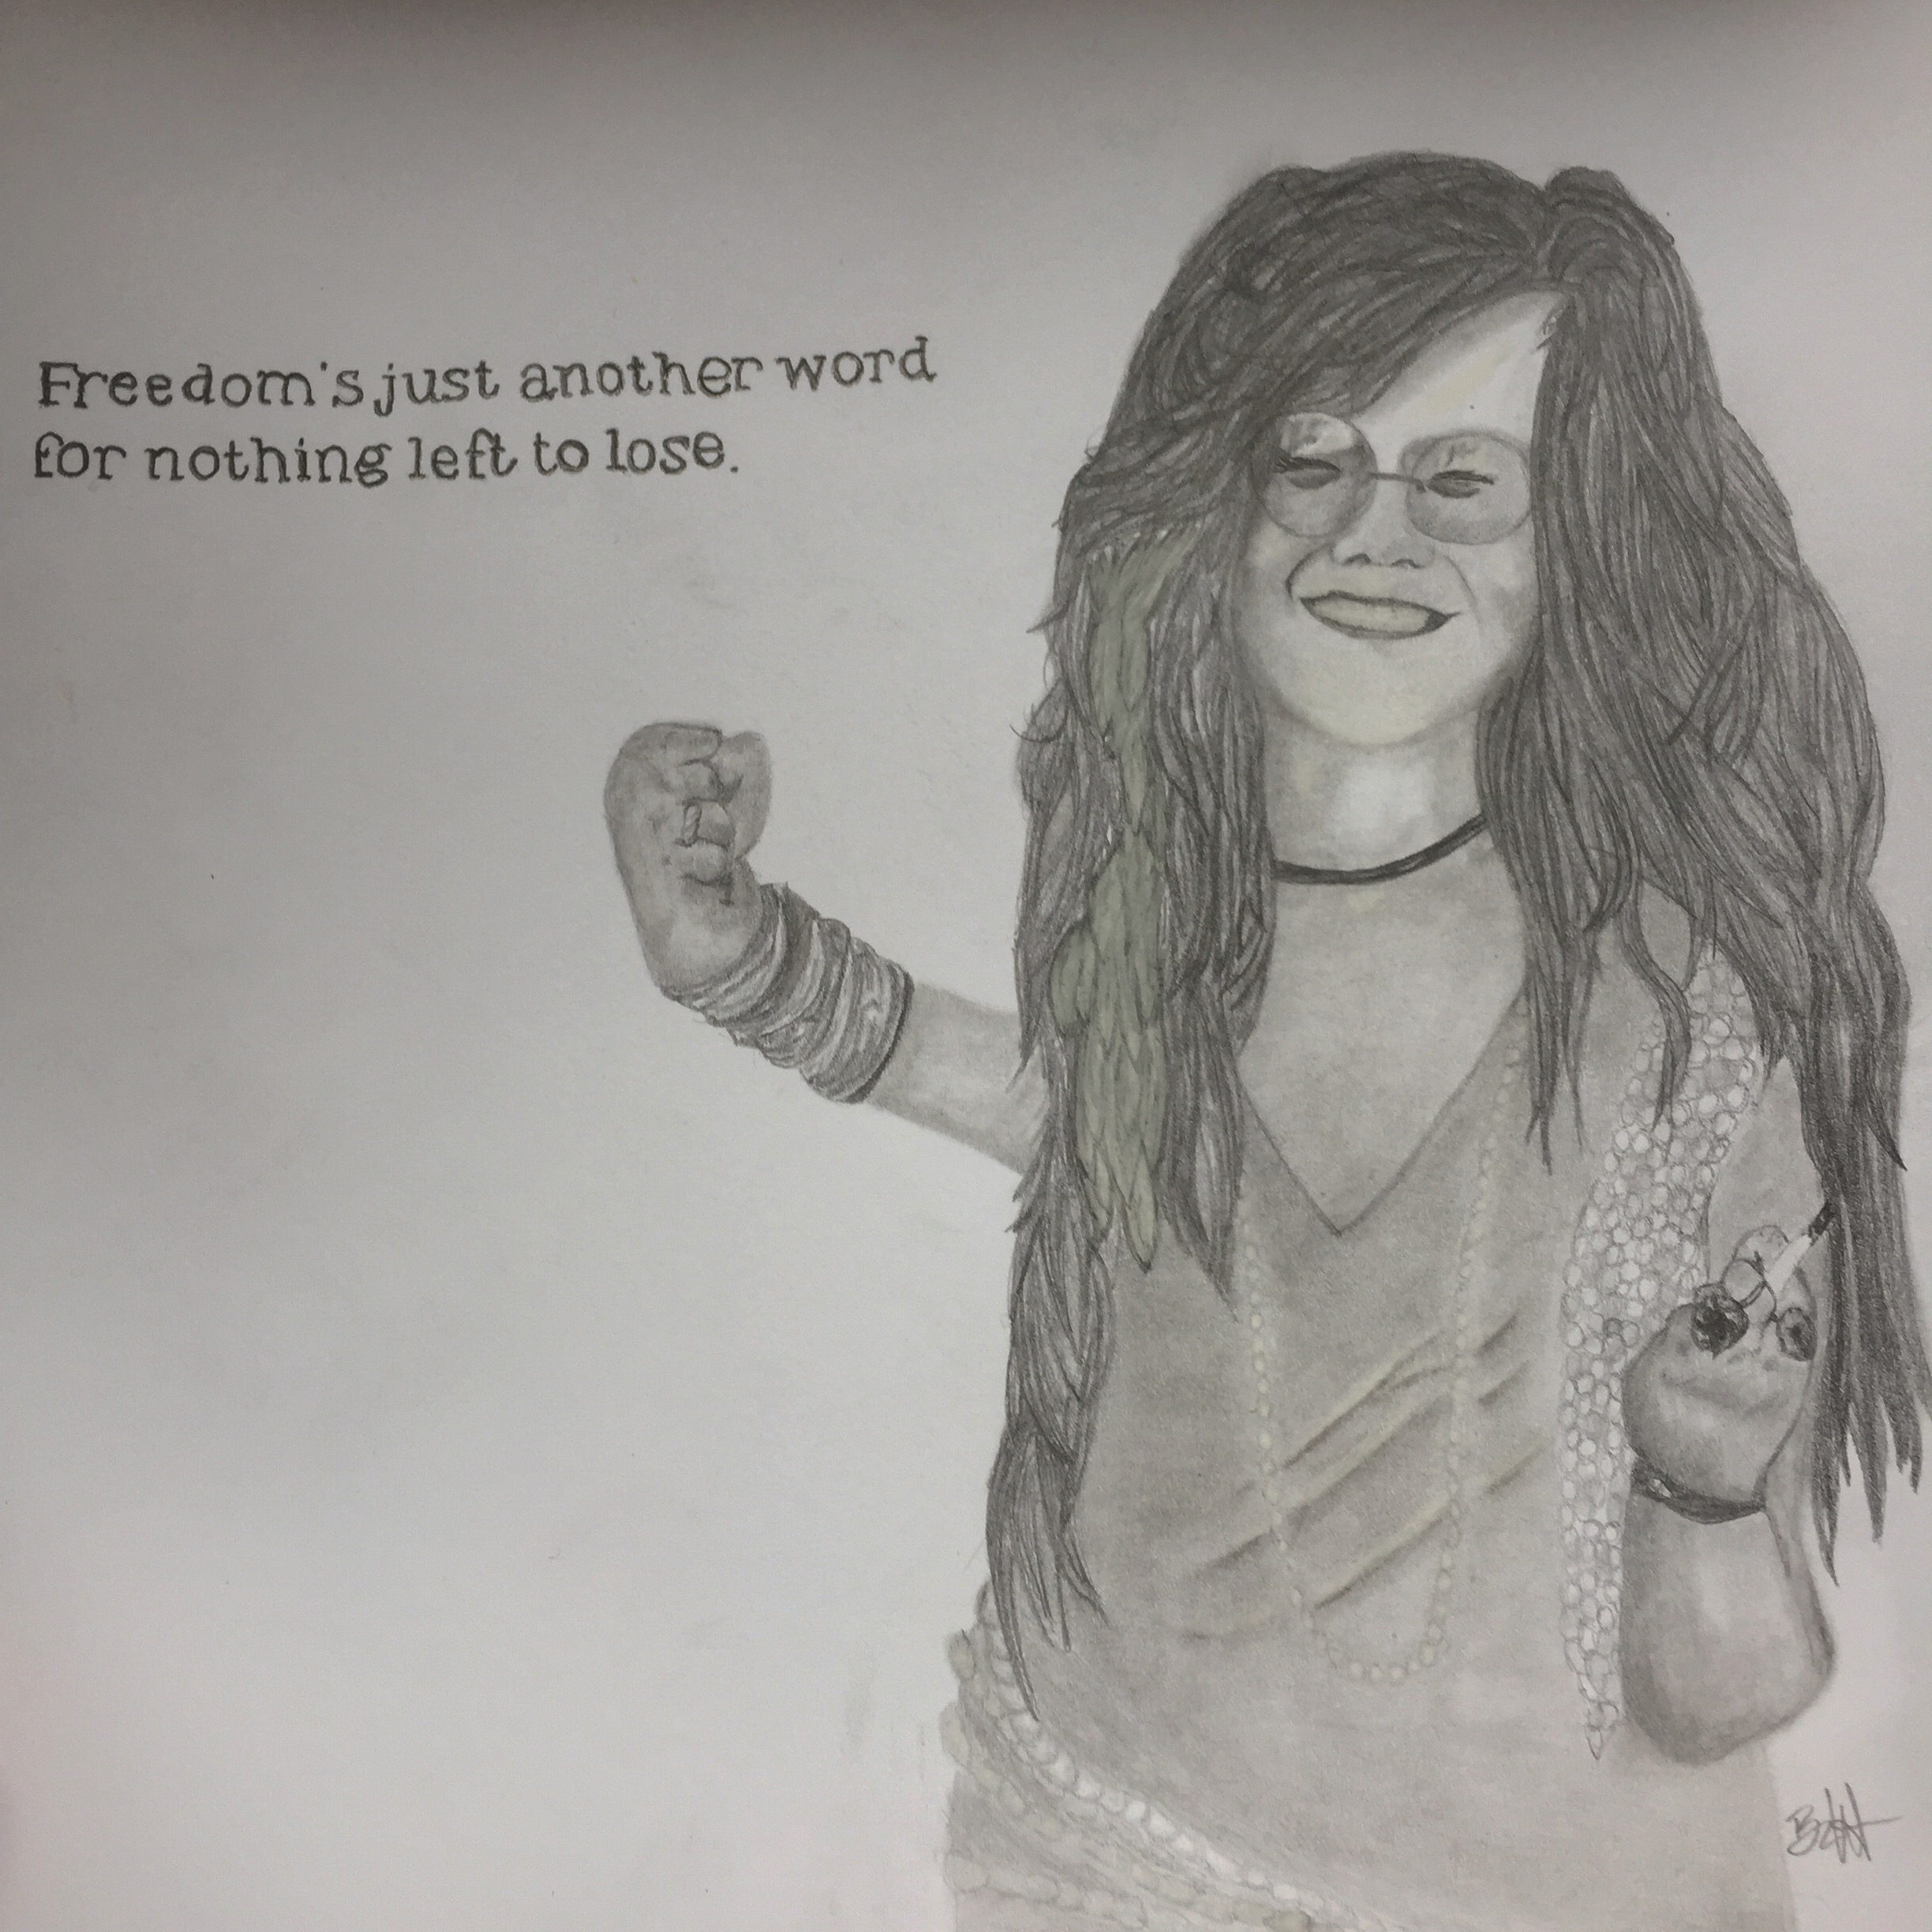 Freedom's just another word
for nothing left to lose.